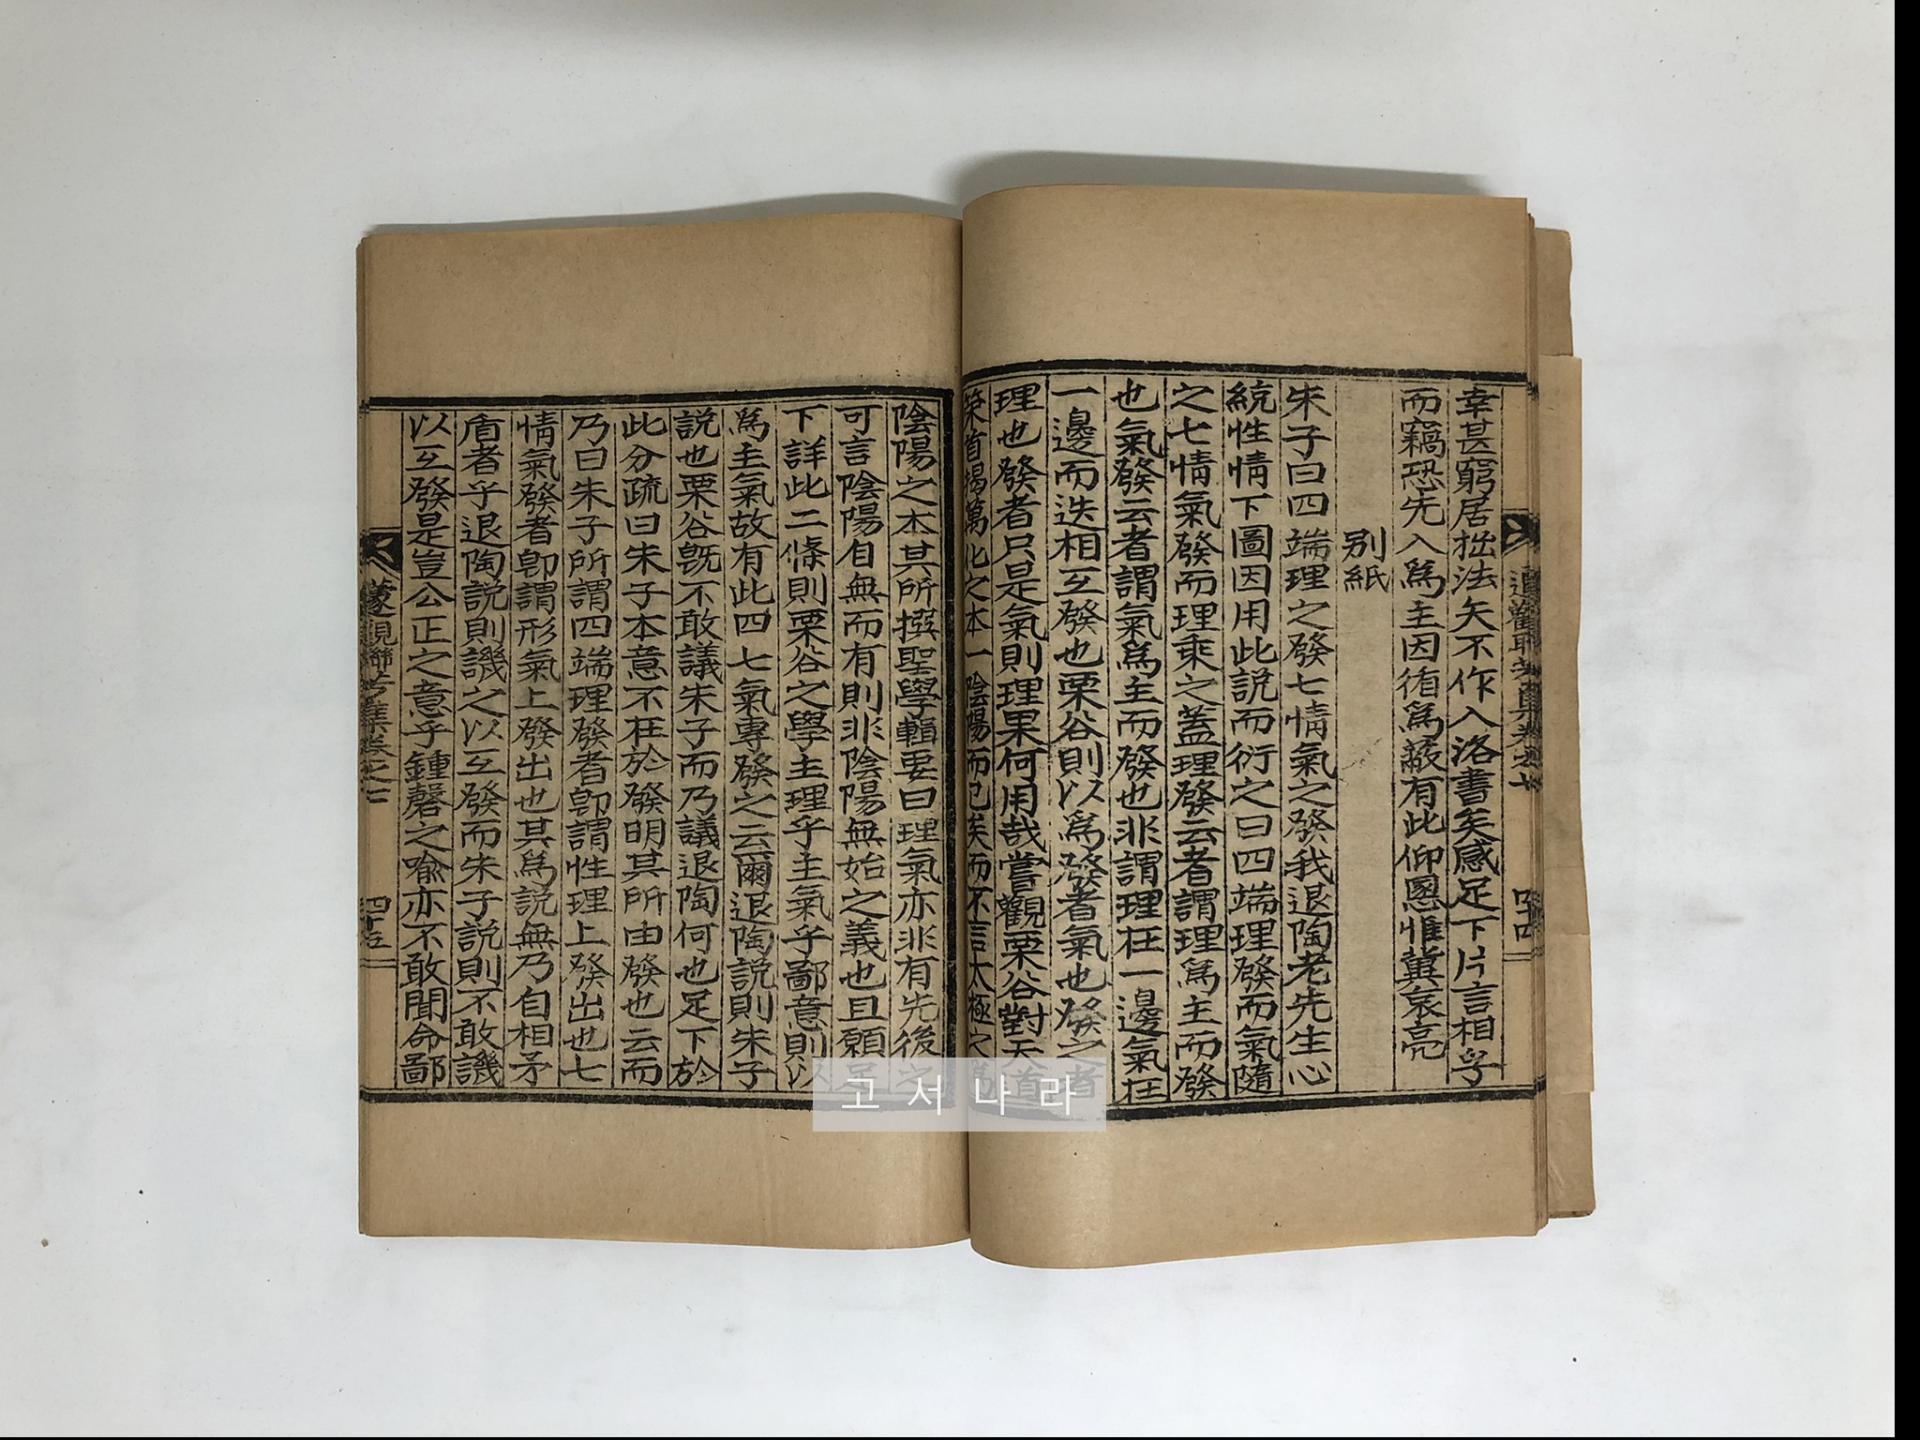 幸甚窮居拙法矢不作入洛書矣感足下片言相孚
而竊恐先入爲主因循爲蔽有此仰慁惟冀哀亮
別紙
朱子曰四端理之發七情氣之發我退陶老先生心
統性情下圖因用此說而衍之曰四端理發而氣隨
之七情氣發而理乘之蓋理發云者謂理爲主而發
也氣發云者謂氣爲主而發也非謂理在一邊氣在
一邊而迭相互發也栗谷則以爲發者氣也發之者
理也發者只是氣則理果何用哉嘗觀栗谷對天道
策首揭萬化之本一陰陽而已矣而不言太極之爲
陰陽之本其所撰聖學輯要曰理氣亦非有先後之
可言陰陽自無而有則非陰陽無始之義也且願足
下詳此二條則栗谷之學主理乎主氣乎鄙意則以
爲主氣故有此四七氣專發之云爾退陶說則朱子
說也栗谷旣不敢議朱子而乃議退陶何也足下於
此分疏曰朱子本意不在於發明其所由發也云而
乃曰朱子所謂四端理發者卽謂性理上發出也七
情氣發者卽謂形氣上發出也其爲說無乃自相矛
盾者乎退陶說則譏之以互發而朱子說則不敢譏
以互發是豈公正之意乎鍾磬之喩亦不敢聞命鄙
集卷之七
四十五
四十四
고서나라